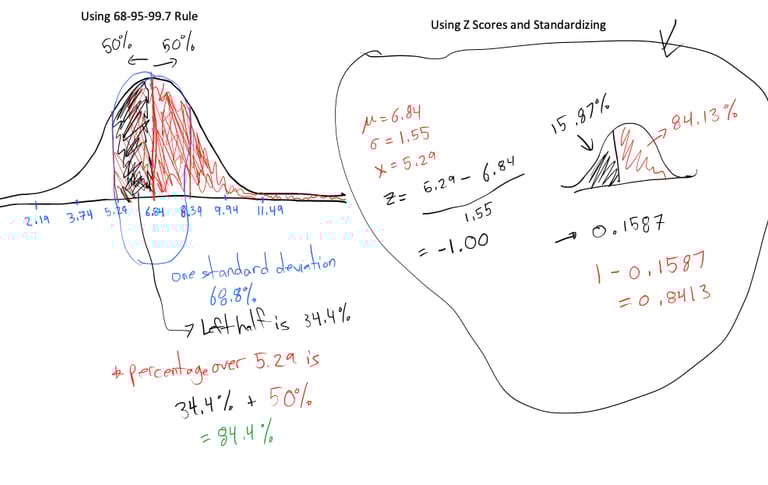 Using 68-95-99.7 Rule
50% 50%
2.19 3.74 5.29 6.84 8.39 9.94 11.49
one standard deviation
68.8%
Left half is 34.4%
* percentage over 5.29 is
34.4% + 50%
= 84.4%
Using Z Scores and Standardizing
μ = 6.84
σ = 1.55
x = 5.29
z = 5.29 - 6.84
1.55
= -1.00
15.87%
84.13%
→ 0.1587
1 - 0.1587
= 0.8413